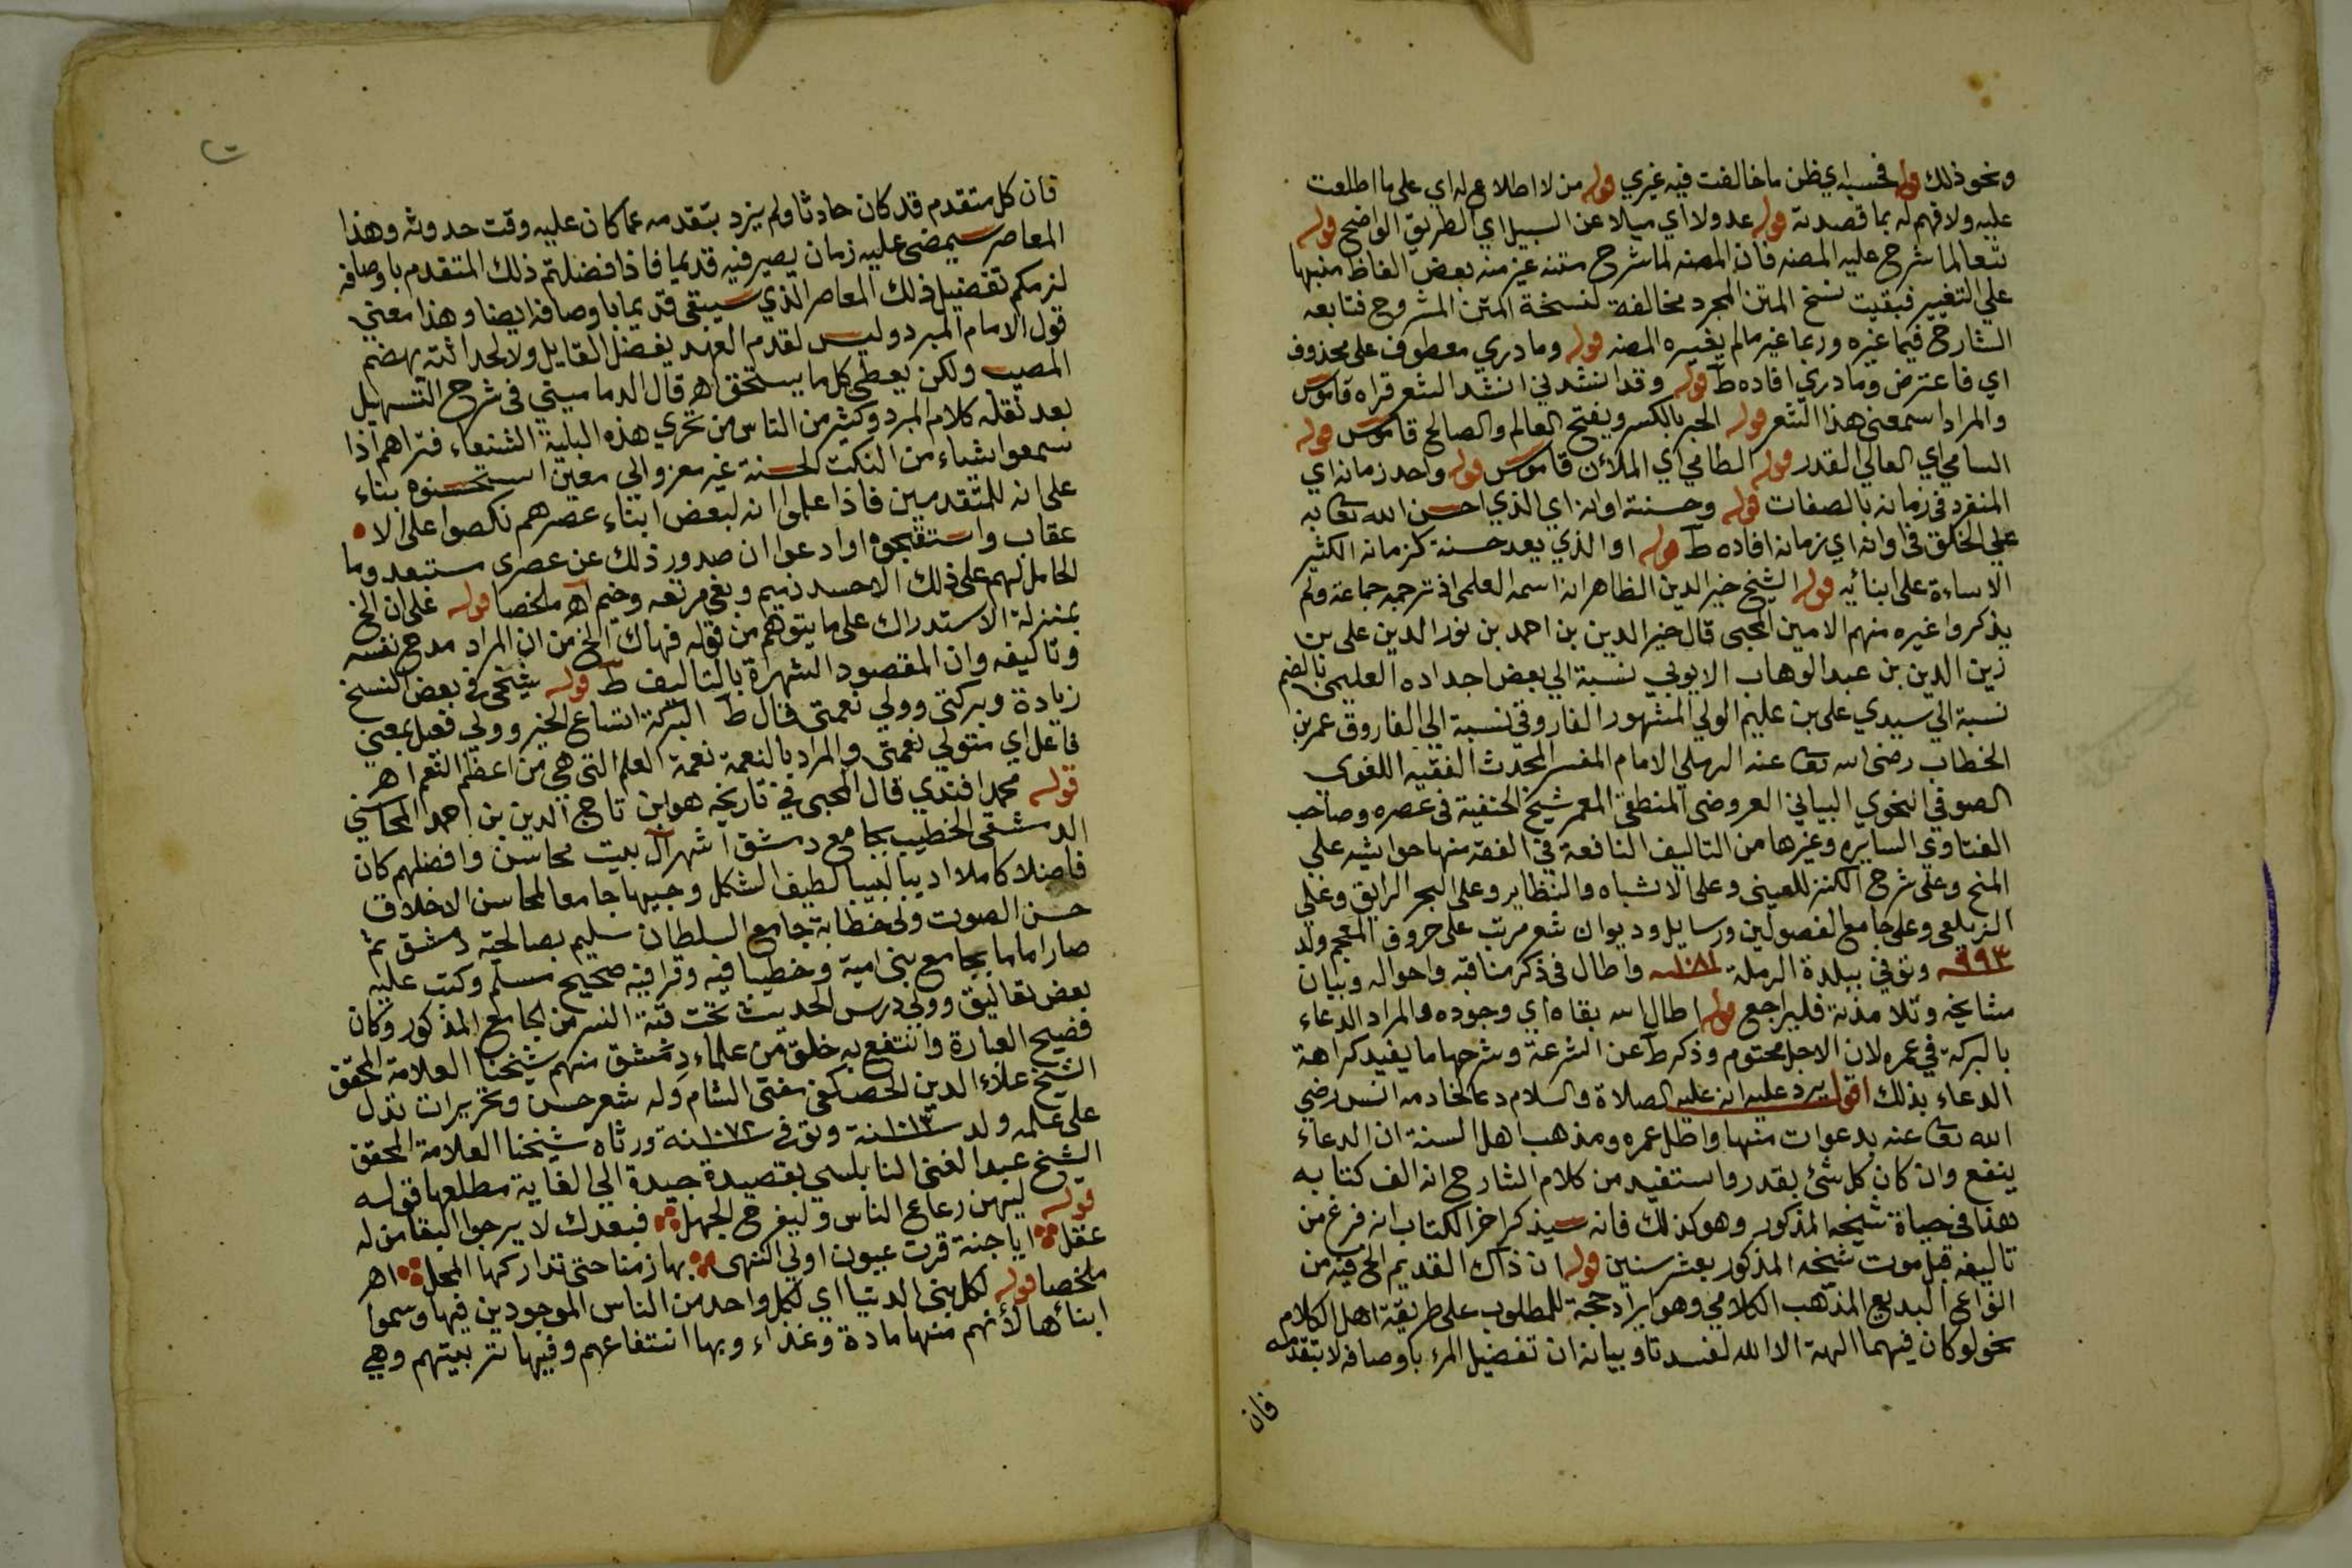 ونحو ذلك قوله فحسبه اي ظن ما خالفت فيه غيري قوله من لا اطلاع له اي على ما اطلعت
عليه ولا فهم له بما قصدته قوله عدولا اي ميلا عن السبيل اي الطريق الواضح قوله
تبعا لما شرح عليه المصنه فان المصنه لما شرح متنه غير منه بعض الفاظ منبها
على التغيير فبقيت نسخ المتن المجرد مخالفة لنسخة المتن المشروح فتابعه
الشارح فيما غيره وربما غير ما لم يغيره المصنه قوله وما دري معطوف على محذوف
اي فاعترض وما دري افاده ط قوله وقد انشدني انشد الشعر قراه قاموس
والمراد اسمعني هذا الشعر قوله الحبر بالكسر ويفتح العالم والصالح قاموس قوله
السامي اي العالي القدر قوله الطامي اي الملآن قاموس قوله واحد زمانه اي
المنفرد في زمانه بالصفات قوله وحسنة اوانه اي الذي احسن الله تعا به
على الخلق في اوانه اي زمانه افاده ط قوله او الذي يعد حسنة لزمانه الكثير
الاساءة على ابنائه قوله الشيخ خير الدين الظاهر انه اسمه العلمي اذ ترجمه جماعة ولم
يذكروا غيره منهم الامين المحبي قال خير الدين بن احمد بن نور الدين علي بن
زين الدين بن عبد الوهاب الايوبي نسبة الي بعض اجداده العليمي بالضم
نسبة الي سيدي علي بن عليم الولي المشهور الفاروقي نسبة الي الفاروق عمر بن
الخطاب رضي الله تعا عنه الرملي الامام المفسر المحدث الفقيه اللغوي
الصوفي النحوي البياني العروضي المنطقي المعمر شيخ الحنفية في عصره وصاحب
الفتاوي السايره وغيرها من التاليف النافعة في الفقه منها حواشيه علي
المنح وعلى شرح الكنز للعيني وعلى الاشباه والنظاير وعلى البحر الرايق وعلي
الزيلعي وعلى جامع الفصولين ورسايل وديوان شعر مرتب على حروف المعجم ولد
٩٩٣ وتوفي ببلدة الرملة ١٠٨١ واطال في ذكر مناقبه واحواله وبيان
مشايخه وتلامذته فليراجع قوله اطال الله بقاه اي وجوده والمراد الدعاء
بالبركة في عمره لان الاجل محتوم وذكر ط عن الشرعة وشرحها ما يفيد كراهة
الدعاء بذلك اقول يرد عليه انه عليه الصلاة والسلام دعا لخادمه انس رضي
الله تعا عنه بدعوات منها واطل عمره ومذهب اهل السنة ان الدعاء
ينفع وان كان كل شئ بقدر واستفيد من كلام الشارح انه الف كتابه
هذا في حياة شيخه المذكور وهو كذلك فانه سيذكر اخر الكتاب انه فرغ من
تاليفه قبل موت شيخه المذكور بعشر سنين قوله ان ذاك القديم الخ فيه من
انواع البديع المذهب الكلامي وهو ايراد حجة للمطلوب على طريقة اهل الكلام
نحو لو كان فيهما الهة الا الله لفسدتا وبيانه ان تفضيل المرء باوصافه لا بتقدمه
فان
فان كل متقدم قد كان حادثا ولم يزد بتقدمه عما كان عليه وقت حدوثه وهذا
المعاصر سيمضي عليه زمان يصير فيه قديما فاذا فضلتم ذلك المتقدم باوصافه
لزمكم تفضيل ذلك المعاصر الذي سيبقى قديما باوصافه ايضا وهذا معني
قول الامام المبرد وليس لقدم العهد يفضل القايل ولا لحداثته يهضم
المصيب ولكن يعطي كل ما يستحق اهـ قال الدماميني في شرح التسهيل
بعد نقله كلام المبرد وكثير من الناس من تحري هذه البلية الشنعاء فتراهم اذا
سمعوا شياء من النكت الحسنة غير معزو الي معين استحسنوه بناء
على انه للمتقدمين فاذا علموا انه لبعض ابناء عصرهم نكصوا على الا
عقاب واستقبحوه او ادعوا ان صدور ذلك عن عصرى مستبعد وما
الحامل لهم على ذلك الا حسد ذميم وبغي مرتعه وخيم اهـ ملخصا قوله على ان الخ
بمنزلة الاستدراك على ما يتوهم من قوله فهاك الخ من ان المراد مدح نفسه
وتاليفه وان المقصود الشهرة بالتاليف ط قوله شيخي في بعض النسخ
زيادة وبركتي وولي نعمتي قال ط البركة اتساع الخير وولي فعيل بمعني
فاعل اي متولي نعمتي والمراد بالنعمة نعمة العلم التي هي من اعظم النعم اهـ
قوله محمد افندي قال المحبي في تاريخه هو ابن تاج الدين بن احمد المحاسني
الدمشقي الخطيب بجامع دمشق اشهر آل بيت محاسن وافضلهم كان
فاضلا كاملا اديبا لبيبا لطيف الشكل وجيها جامعا لمحاسن الاخلاق
حسن الصوت ولى خطابة جامع السلطان سليم بصالحية دمشق ثم
صار اماما بجامع بني امية وخطيبا فيه وقرا فيه صحيح مسلم وكتب عليه
بعض تعاليق وولي درس الحديث تحت قبة النسر من الجامع المذكور وكان
فصيح العبارة وانتفع به خلق من علماء دمشق منهم شيخنا العلامة المحقق
الشيخ علاء الدين الحصكفي مفتي الشام وله شعر حسن وتحريرات تدل
على علمه ولد ١٠١٢ سنة وتوفي ١٠٧٢ سنة ورثاه شيخنا العلامة المحقق
الشيخ عبد الغني النابلسي بقصيدة جيدة الي الغاية مطلعها قوله
قوله ليهن رعاع الناس وليفرح الجهل فبعدك لا يرجوا البقا من له
عقل ايا جنة قرت عيون اولي النهى بها زمنا حتى تداركها المحل اهـ
ملخصا قوله لكل بني الدنيا اي لكل واحد من الناس الموجودين فيها وسموا
ابنائها لأنهم منها مادة وغذاء وبها انتفاعهم وفيها تربيتهم وهي